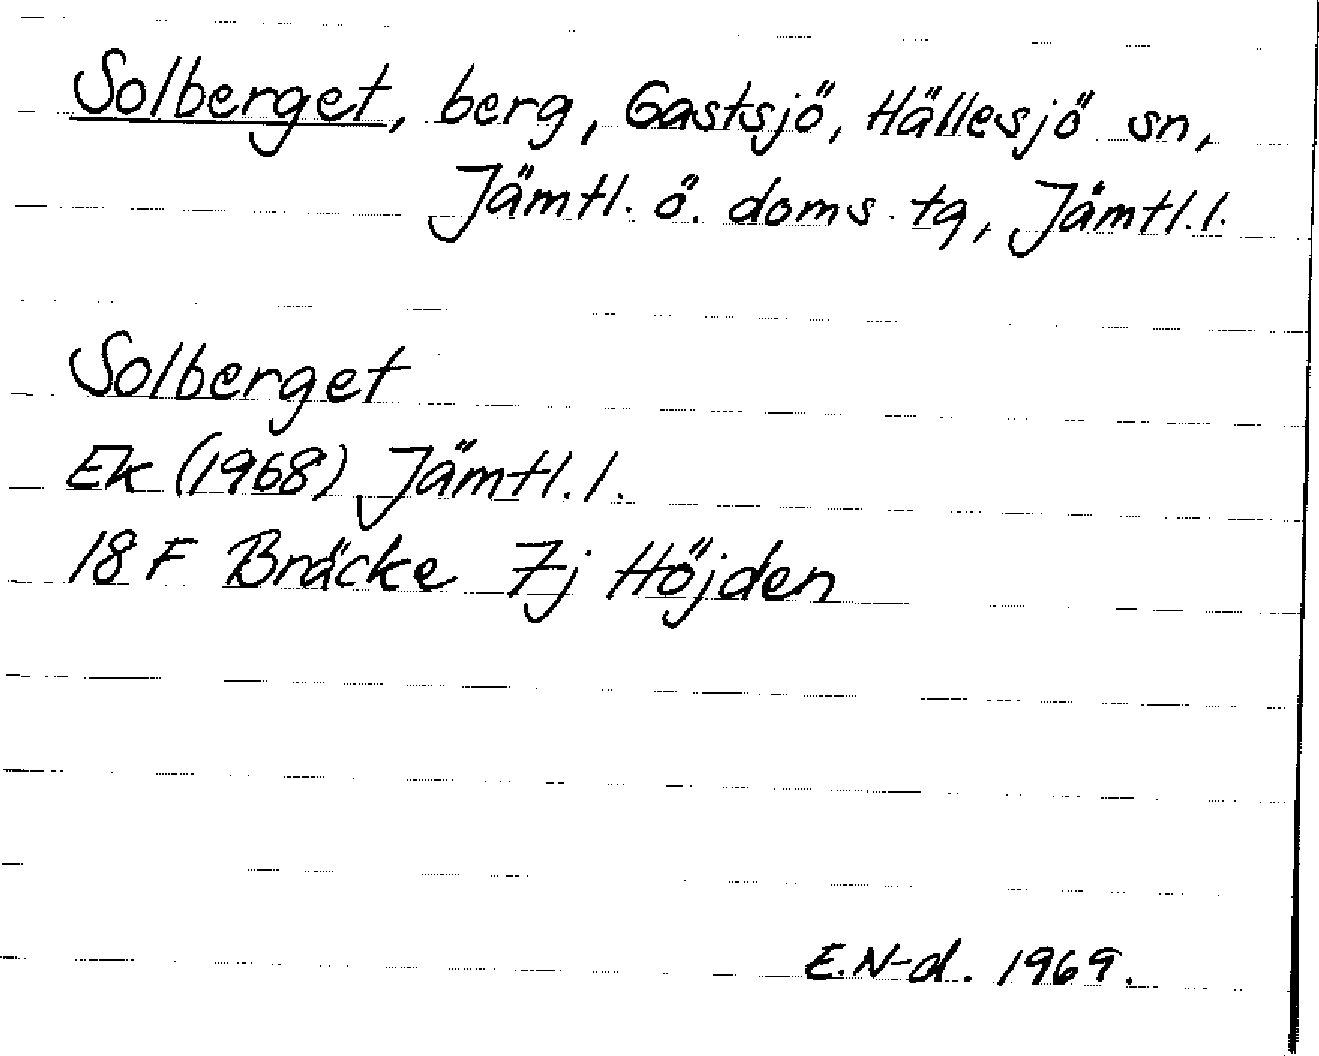 Solberget, berg, Gastsjö, Hällesjö sn,
Jämtl. ö. doms. tg, Jämtl. l.
Solberget
Ek (1968) Jämtl. l.
18 F Bräcke 7j Höjden
E.N-d. 1969.